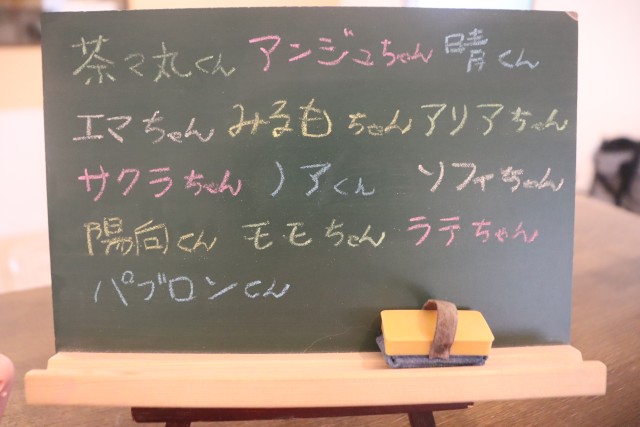 茶々丸くん アンジュちゃん 晴くん
エマちゃん みるもちゃん アリアちゃん
サクラちゃん ノアくん ソフィちゃん
陽向くん モモちゃん ラテちゃん
パブロンくん